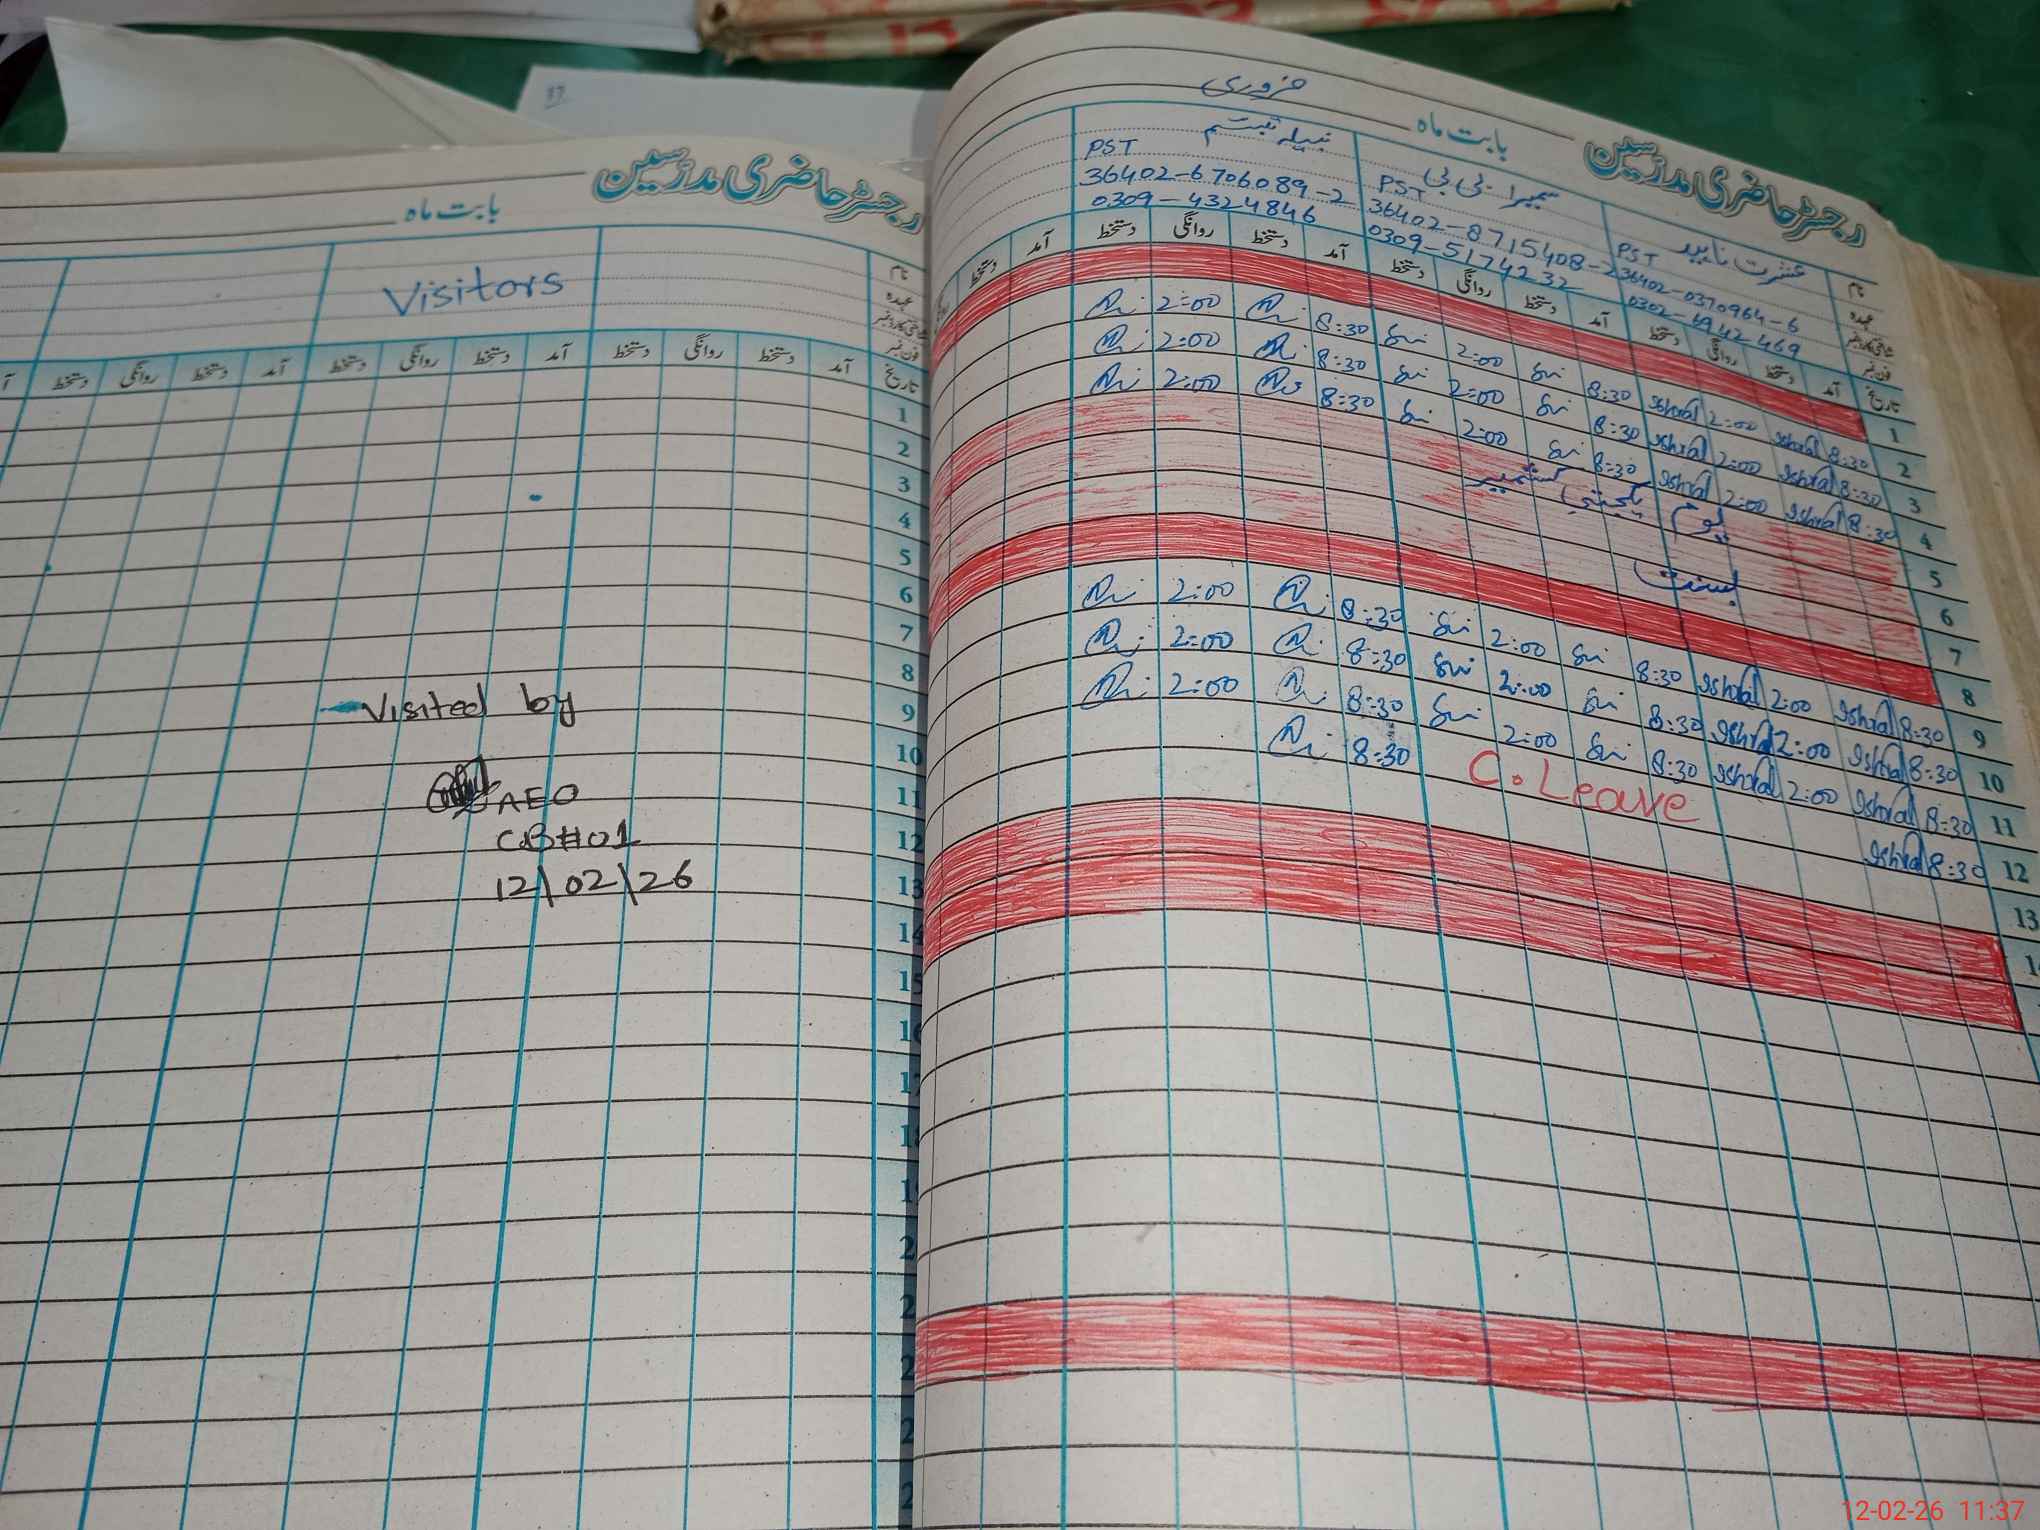 رجسٹر حاضری مدرسین
بابت ماہ فروری
نام عشرت ناہید سمیرا بی بی نبیلہ تبسم
عہدہ PST PST PST
شناختی کارڈ نمبر 36402-0370964-6 36402-8715408-2 36402-6706089-2
فون نمبر 0302-6942469 0309-5174232 0309-4324846
تاریخ آمد دستخط روانگی دستخط آمد دستخط روانگی دستخط آمد دستخط روانگی دستخط آمد دستخط
1
2 8:30 Ishrat 2:00 Ishrat 8:30 2:00 8:30 2:00
3 8:30 Ishrat 2:00 Ishrat 8:30 2:00 8:30 2:00
4 8:30 Ishrat 2:00 Ishrat 8:30 2:00 8:30 2:00
5 یوم یکجہتی کشمیر
6 بسنت
7
8
9 8:30 Ishrat 2:00 Ishrat 8:30 2:00 8:30 2:00
10 8:30 Ishrat 2:00 Ishrat 8:30 2:00 8:30 2:00
11 8:30 Ishrat 2:00 Ishrat 8:30 2:00 8:30 2:00
12 8:30 Ishrat C. Leave 8:30
13
رجسٹر حاضری مدرسین
بابت ماہ
نام
عہدہ
شناختی کارڈ نمبر
فون نمبر
Visitors
تاریخ آمد دستخط روانگی دستخط آمد دستخط روانگی دستخط آمد دستخط روانگی دستخط
1
2
3
4
5
6
7
8
9
10
11
12
13
14
15
Visited by
AEO
CB#01
12\02\26
37
12-02-26 11:37